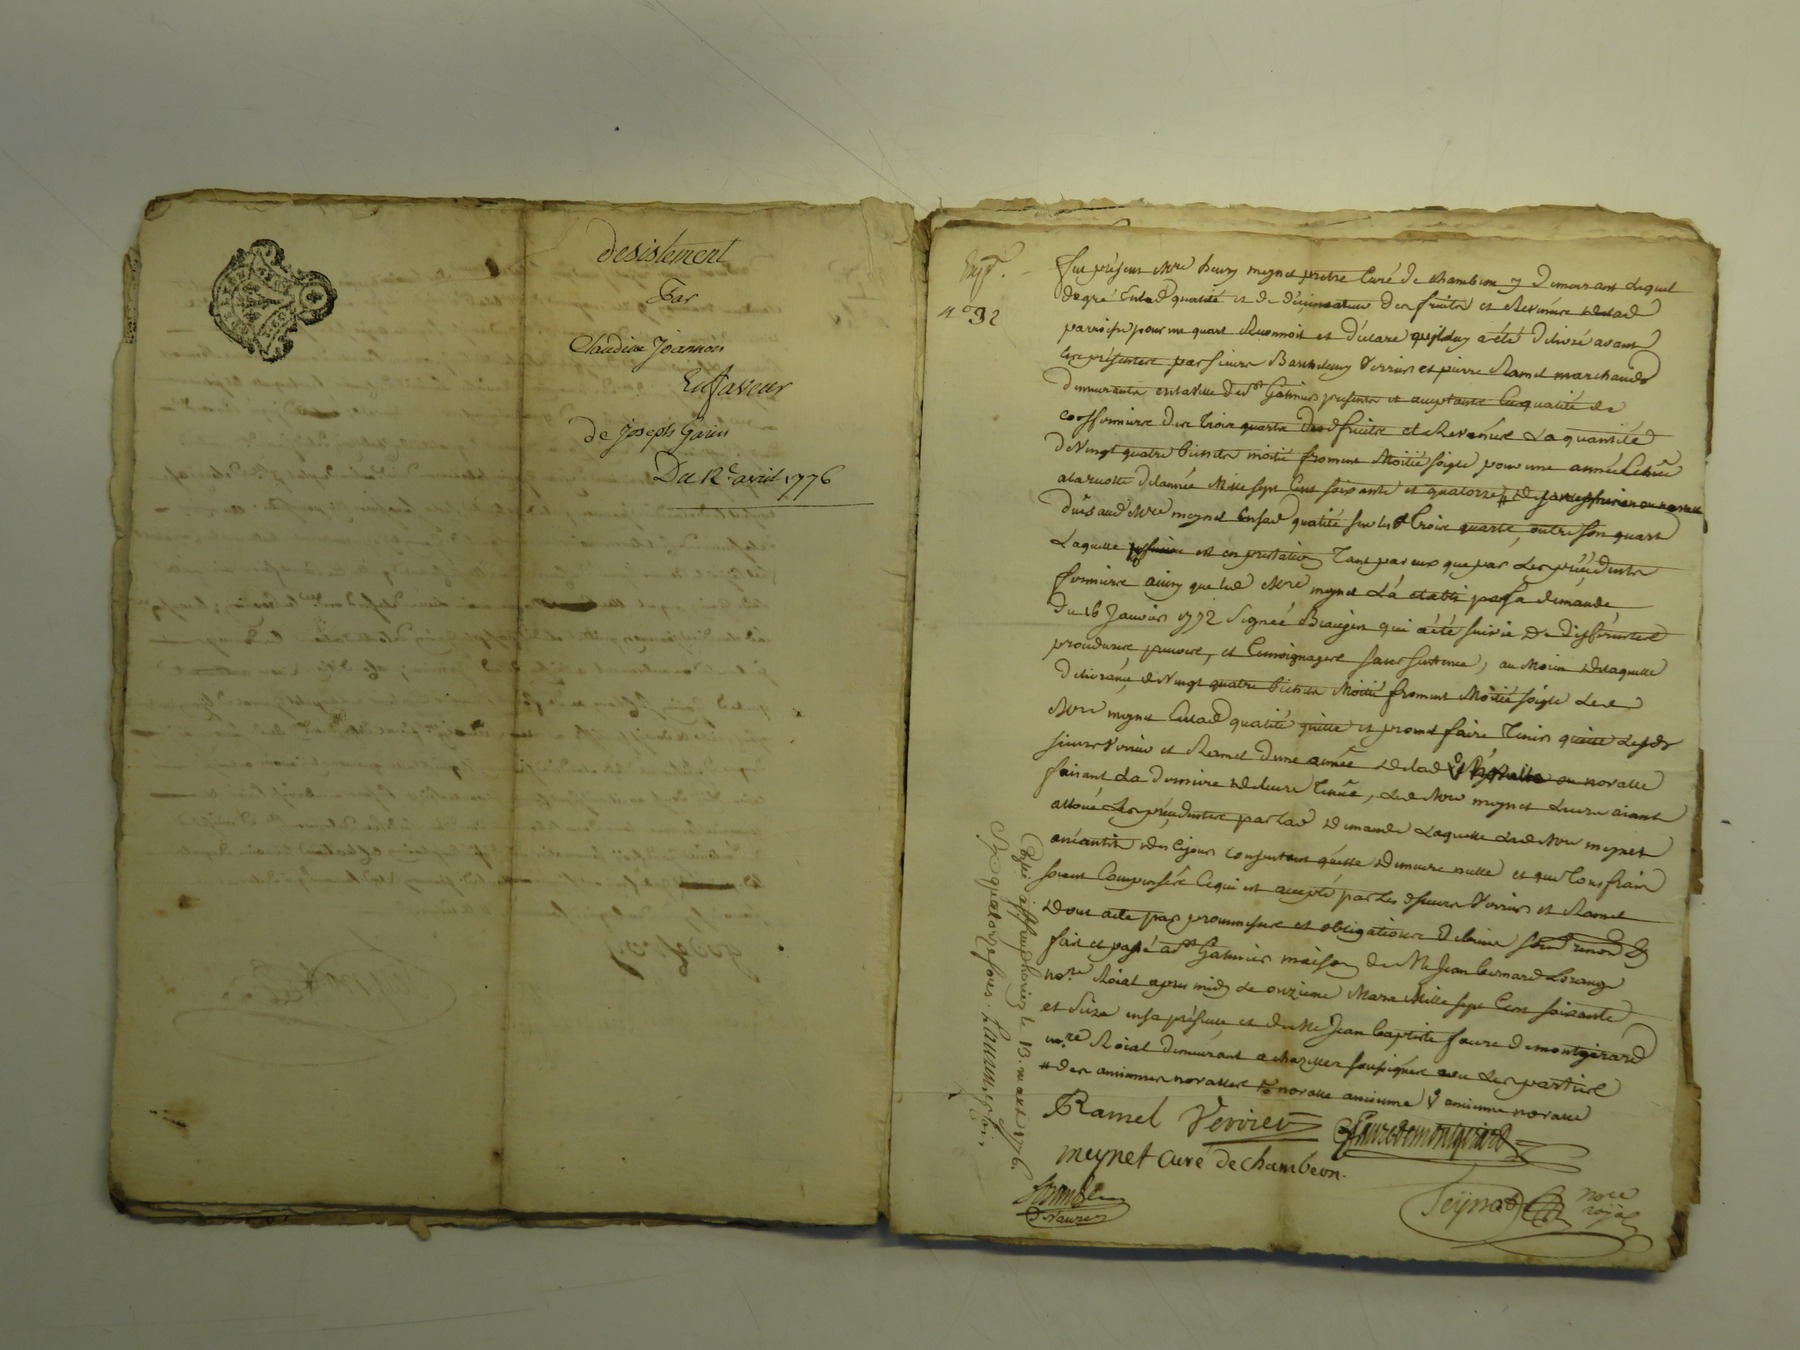 desistement
Par
Claudine Joannon
En faveur
de Joseph Garin
Du 12e avril 1776
Exp.
n° 32
fut présent Mre henry meynet pretre Curé de chambeon y demeurant Lequel
de gré en lad qualité et de décimateur des fruits et Revenus de lad
parroisse pour un quart Reconnoit et déclare qu'il luy a été délivré avant
ces présentes par sieurs Barthelemy Verrier et pierre Ramel marchands
demeurants en la ville de St Galmier presents et acceptants en qualité de
cofformiers des trois quarts desd fruits et Revenus La quantité
de Vingt quatre bichets moitié froment Moitié soigle pour une année echue
a la recolte de l'année Mille sept Cent soixante et quatorze #
dués aud Mre meynet en sad qualité sur les trois quarts, outre son quart
Laquelle est en prestation tant par eux que par Les précédents
formiers ainsy que led Mre meynet L'a etabli par sa demande
du 16 Janvier 1772 Signée Biaugen qui a été suivie de différentes
procedures preuves, et temoignages sauf sentence, au Moien de laquelle
délivrance de Vingt quatre bichets Moitié froment Moitié soigle led
Mre meynet en sad qualité quitte et promet faire tenir quitte Lesds
sieurs Verrier et Ramel d'une année de lad novalle
faisant La derniere de leurs tenue, led Mre meynet Leurs aiant
alloué Les précédentes par lad demande Laquelle led Mre meynet
anéantit des ce jour consentant qu'elle demeure nulle et que tous frais
soient Compensés Ce qui est accepté par Les dsieurs Verrier et Ramel
dont acte par prommesses et obligations de biens
fait et passé a St Galmier maison de Me Jean bernard Lorange
nore Roial apres midy Le onzieme Mars Mille sept Cent soixante
et Seize en sa présence et de Me Jean baptiste faure de montgirard
nore Roial demeurant a chazelles soussignés avec Les parties
# des anciennes novalles novalle ancienne ancienne novalle
Ramel Verrier fauredemontgirard
meynet curé de chambéon.
Teÿnard nore royal
le 13. mars 1776.
quatorze sous.